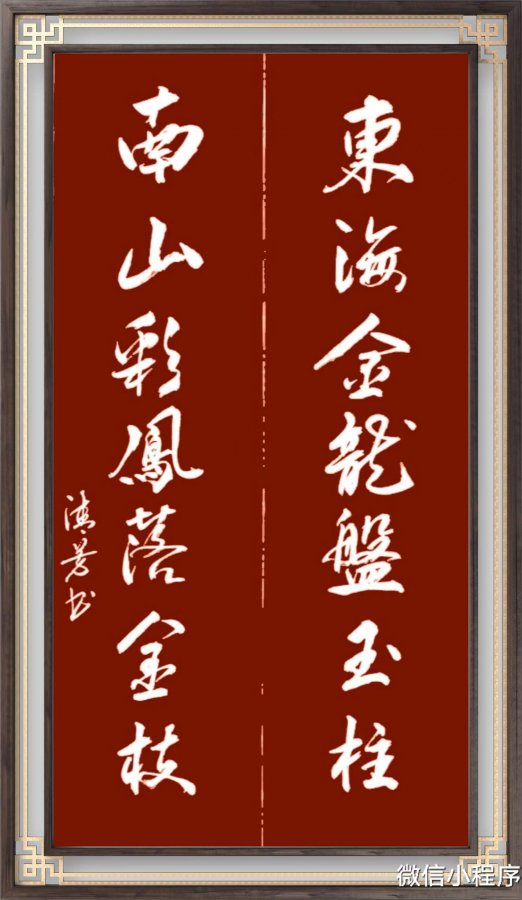 東海金龍盤玉柱
南山彩鳳落金枝
微信小程序